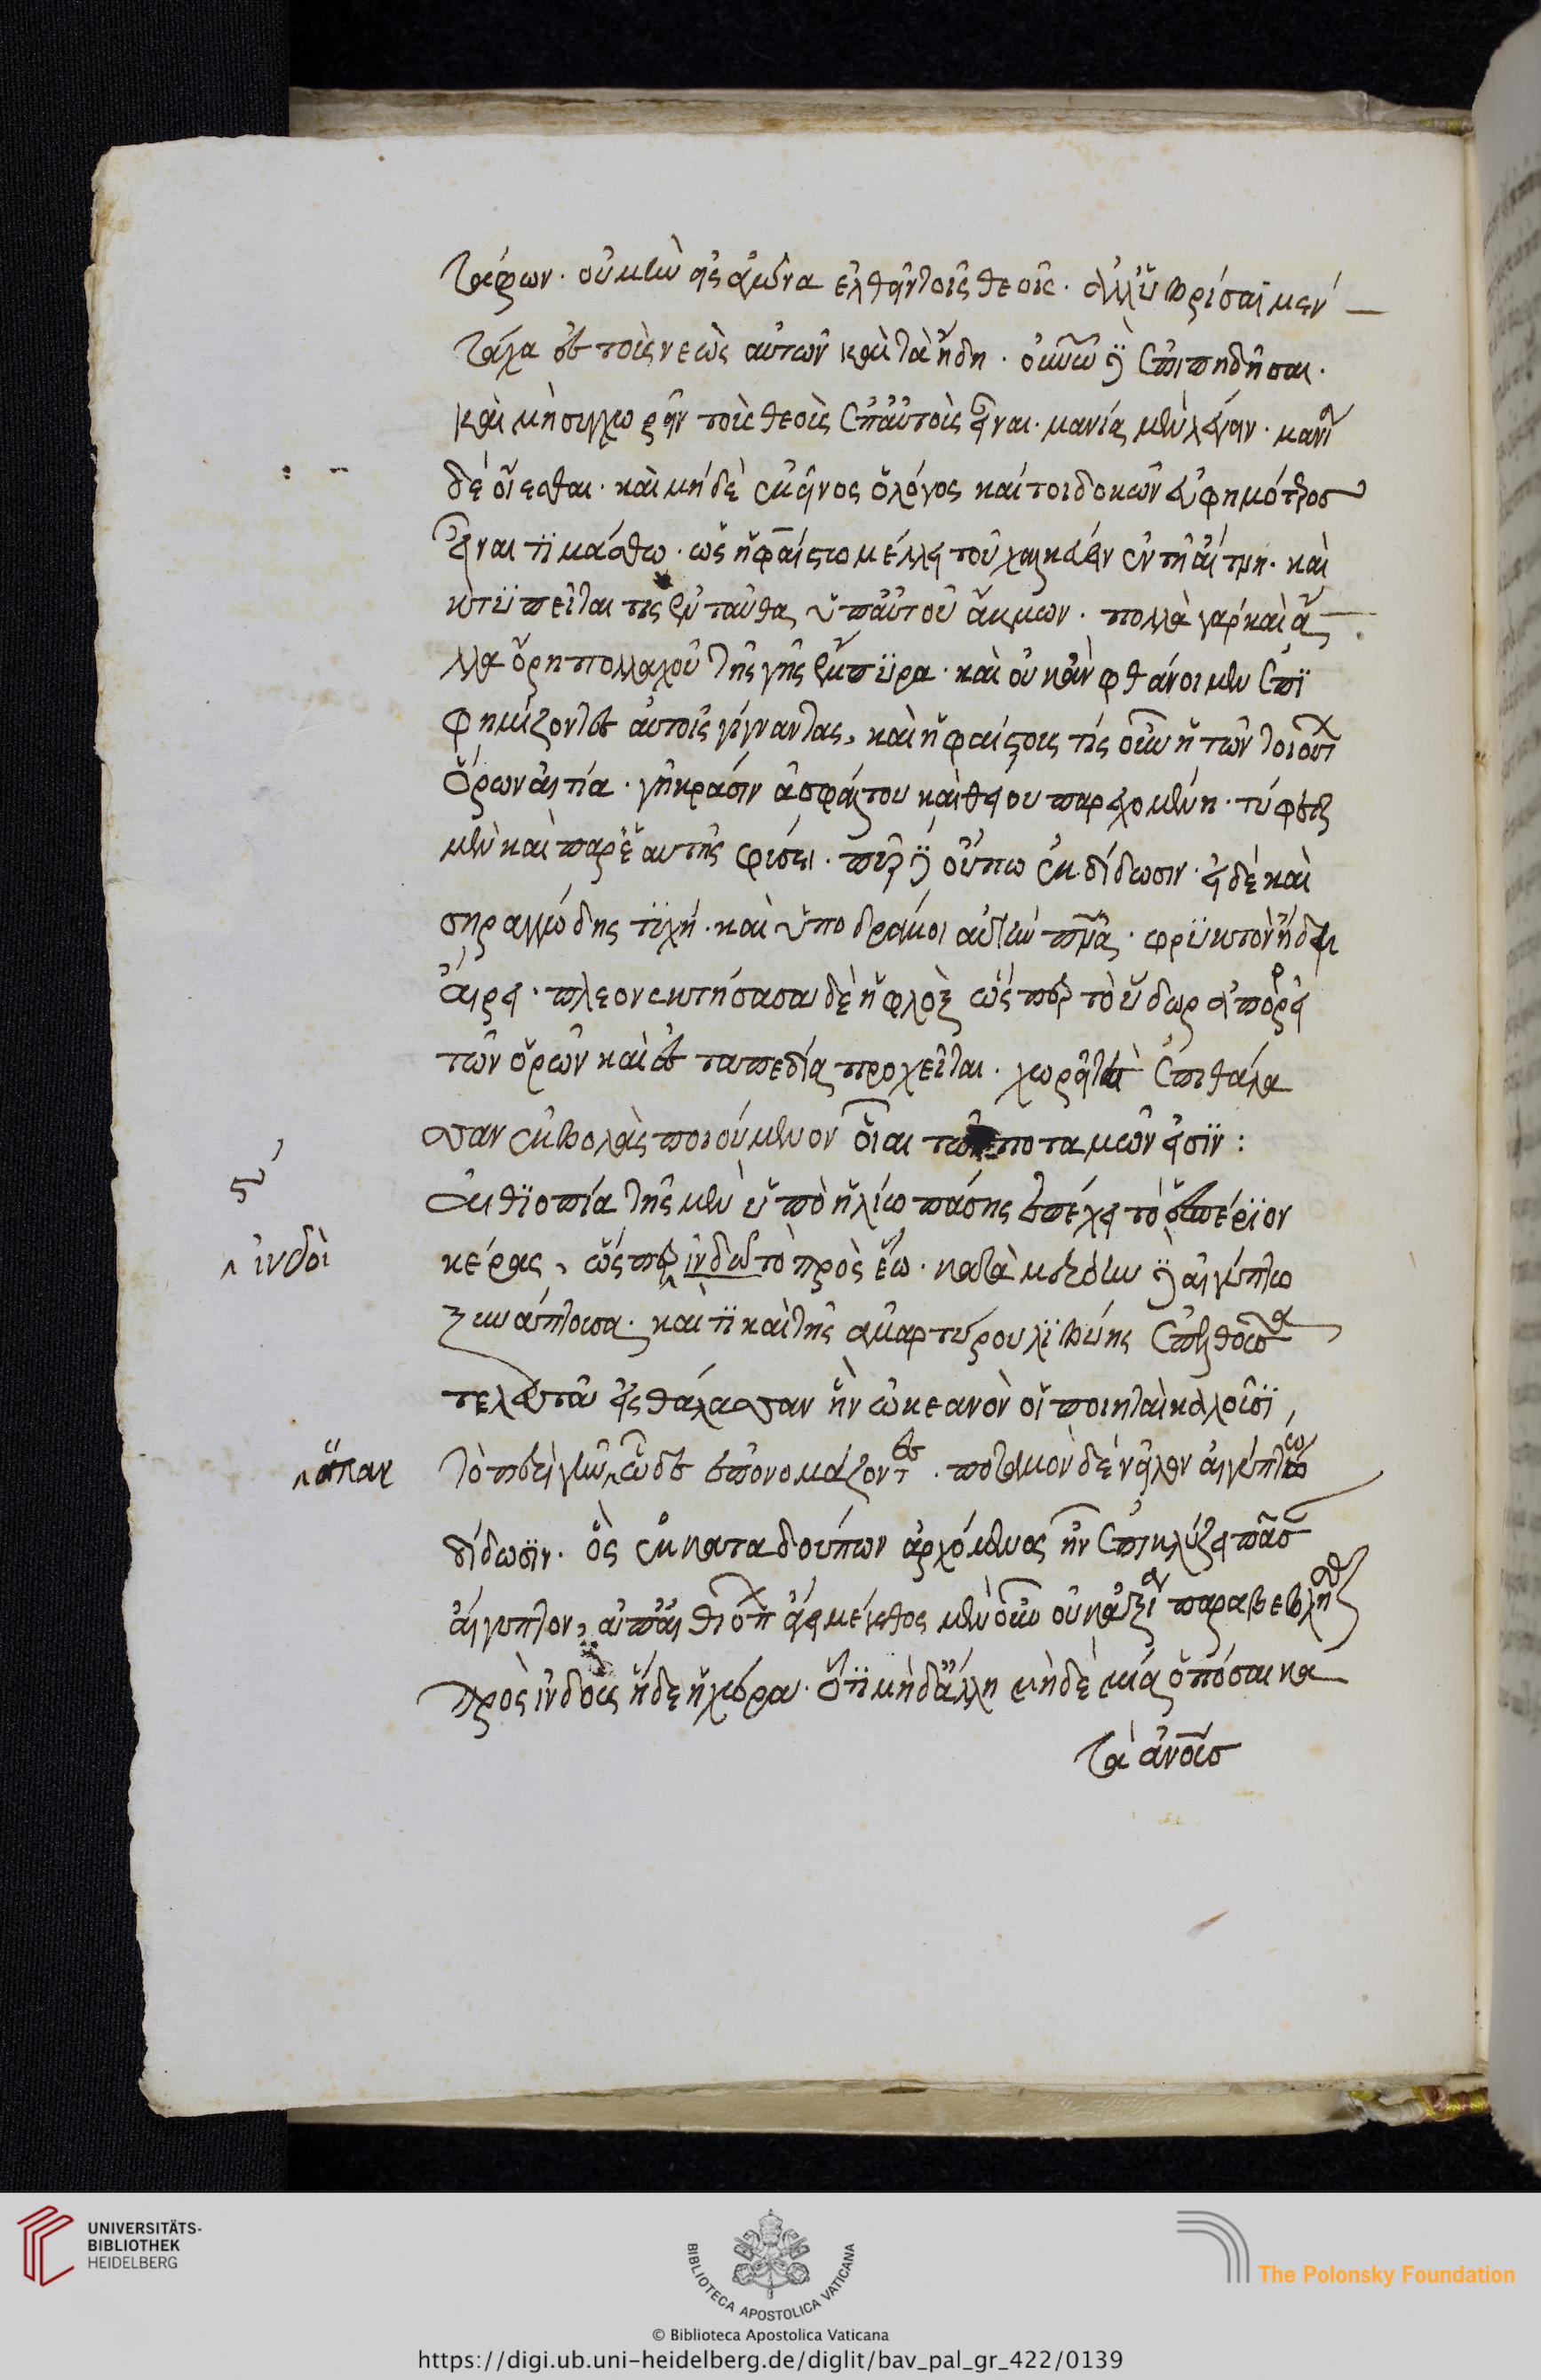 τάφων. οὐ μὴν ἐς ἀγῶνα ἐλθεῖν τοῖς θεοῖς. ἀλλ' ὑβρίσαι μὲν
τάχα ἐς τοὺς νεὼς αὐτῶν καὶ τὰ ἤδη. οὐνῶ δὲ ἐπιπηδῆσαι.
καὶ μὴ συγχωρεῖν τοὺς θεοὺς ἐπ' αὐτοὺς εἶναι. μανία μὲν λέγειν. μανία
δὲ οἴεσθαι. καὶ μηδὲ ἐκεῖνος ὁ λόγος καίτοι δοκῶν εὐφημότερος
εἶναι τϊμάσθω. ὡς ἡφαίστω μέλλει τοῦ χαλκεύειν ἐν τῆ αἴτνη. καὶ
κτϋπεῖται τις ἐνταῦθα ὑπ' αὐτοῦ ἄκμων. πολλὰ γὰρ καὶ ἄ
λλα ὄρη πολλαχοῦ τῆς γῆς ἔμπϋρα. καὶ οὐκ ἂν φθάνοιμεν ἐπϊ
φημίζοντες αὐτοῖς γίγναντας, καὶ ἡφαίστους τίς οὖν ἡ τῶν τοιούτων
ὄρων αἰτία. γῆ κράσιν ἀσφάλτου καὶ θείου παρεχομένη. τύφεται
μὲν καὶ παρ' ἑαυτῆς φύσει. πῦρ δὲ οὔπω ἐκδίδωσιν. εἰ δὲ καὶ
σηραγγώδης τϋχη. καὶ ὑποδράμοι αὐτὴν πνᾶ. φρϋκτὸν ἤδη
αἴρει. πλεονεκτήσασα δὲ ἡ φλὸξ ὥσπερ τὸ ὕδωρ ἀπορρεῖ
τῶν ὄρων καὶ ἐς τα πεδία προχεῖται. χωρεῖ τε ἐπι θάλα
σσαν ἐκβολὰς ποιούμενον οἷαι τῶν ποταμῶν εἰσϊν:
Αἰθϊοπία τῆς μὲν ὑπὸ ἡλίω πάσης ἐπέχει τὸ ἑσπέρϊον
κέρας, ὥσπερ ἰνδῶ τὸ πρὸς ἕω. κατὰ μερόην δὲ αἰγύπτω
ξυνάπτουσα. καὶ τϊ καὶ τῆς ἀμαρτύρου λϊβύης ἐπελθοῦσα
τελευτᾶ ἐς θάλασσαν ἣν ὠκεανὸν οἱ ποιηταὶ καλοῦσϊ,
τὸ περὶ γῆν ὧδε ἐπονομάζοντες. ποταμὸν δὲ νεῖλον αἰγύπτω
δίδωσϊν. ὃς ἐκ καταδούπων ἀρχόμενος ἣν ἐπικλύζει πᾶσαν
αἴγυπτον, ἀπ' αἰθιόπων ἄγει μέγεθος μὲν οὖν οὐκ ἀξία παραβεβλῆσθαι
πρὸς ἰνδοὺς ἥδε ἡ χώρα. ὅτϊ μὴδ' ἄλλη μὴδὲ μία ὁπόσαι κα
τὰ ἀνους
ʹϛ
ἰνδοὶ
ἅπαν
UNIVERSITÄTS-
BIBLIOTHEK
HEIDELBERG
BIBLIOTECA APOSTOLICA VATICANA
The Polonsky Foundation
© Biblioteca Apostolica Vaticana
https://digi.ub.uni-heidelberg.de/diglit/bav_pal_gr_422/0139